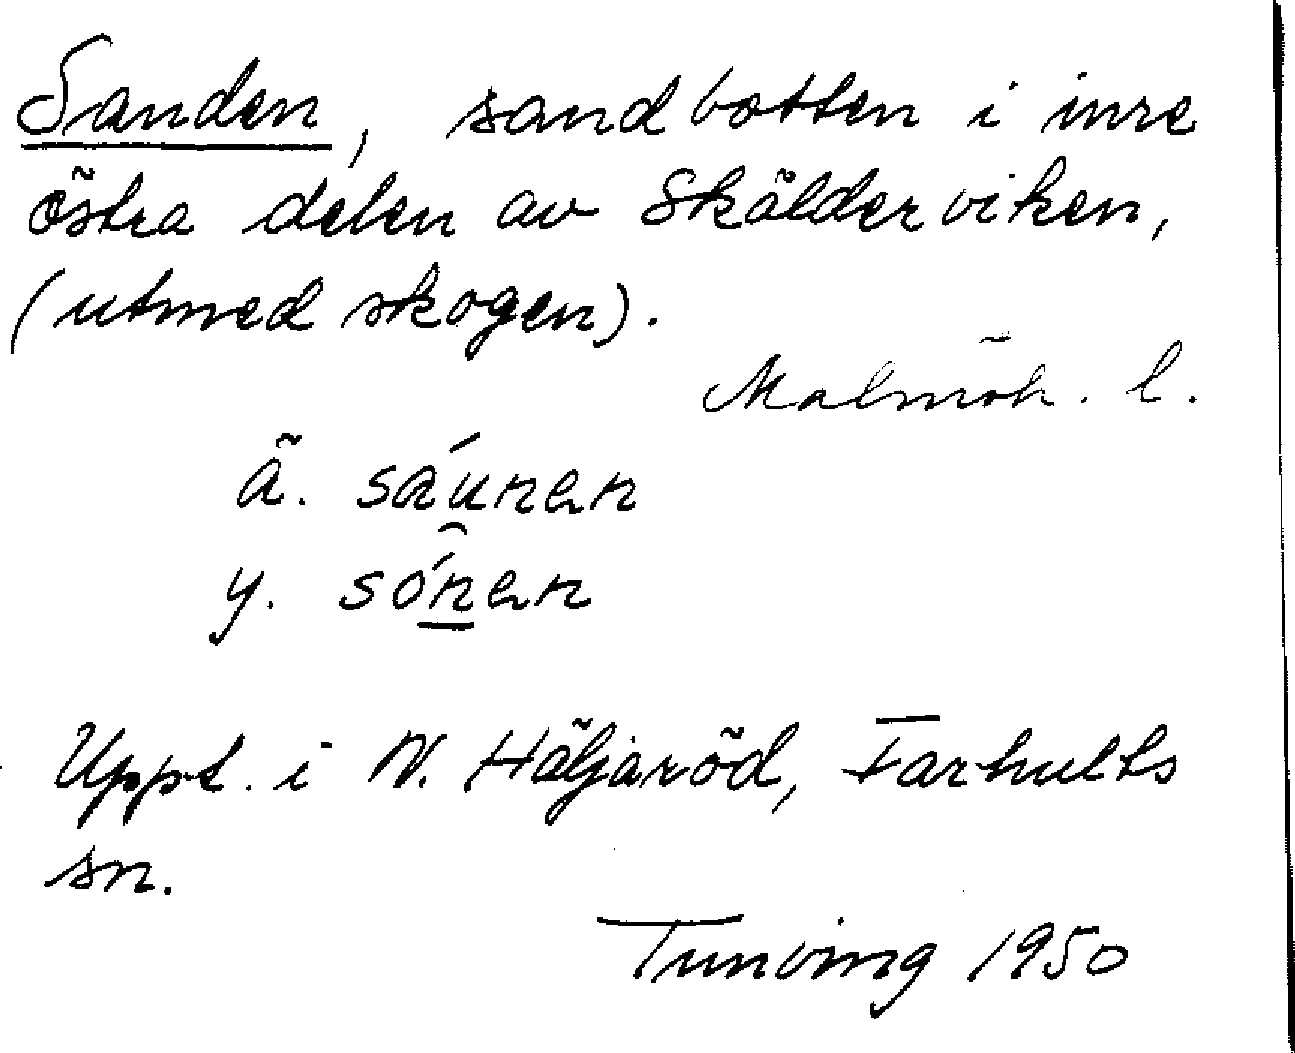 Sanden, sandbotten i inre
östra delen av Skälderviken,
(utmed skogen).
Malmöh. l.
ä. sáunen
y. só̲nen
Uppt. i N. Häljaröd, Farhults
sn.
Tunving 1950